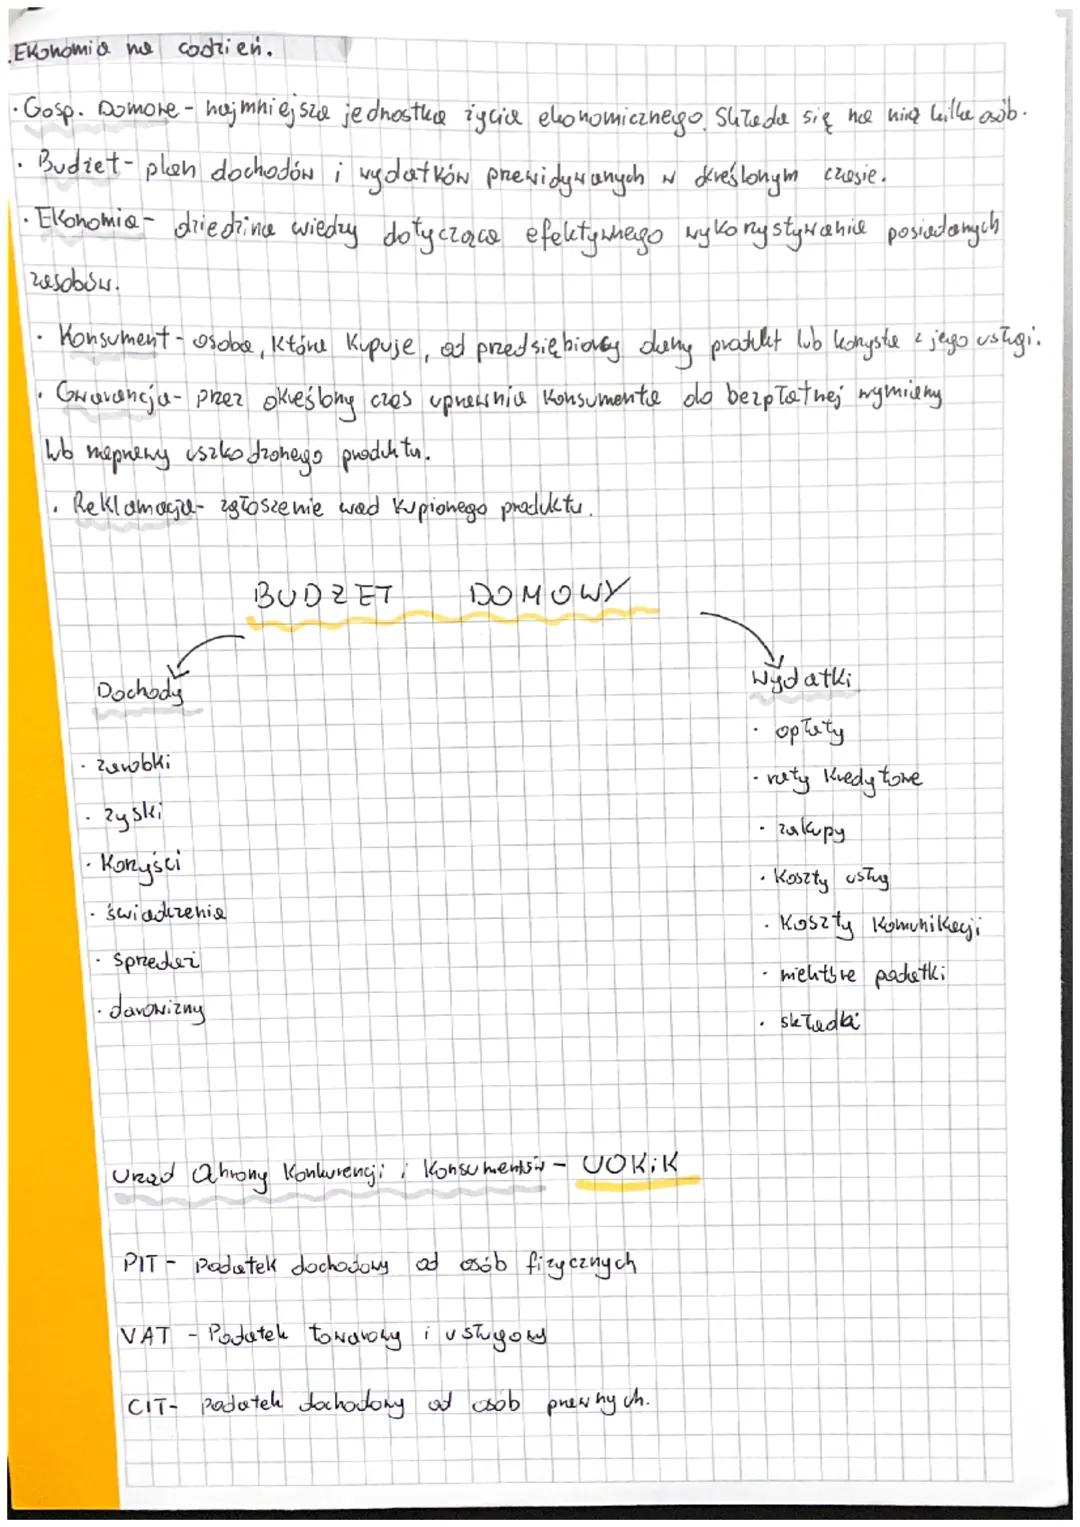 Ekonomia na codzień.
· Gosp. Domowe - najmniejsza jednostka życia ekonomicznego. Składa się na nią kilka osób.
· Budżet - plan dochodów i wydatków przewidywanych w określonym czasie.
· Ekonomia - dziedzina wiedzy dotycząca efektywnego wykorzystywania posiadanych
zasobów.
· Konsument - osoba, która kupuje, od przedsiębiorcy dany produkt lub korzysta z jego usługi.
· Gwarancja - przez określony czas uprawnia konsumenta do bezpłatnej wymieny
lub naprawy uszkodzonego produktu.
· Reklamacja - zgłoszenie wad kupionego produktu.
BUDŻET DOMOWY
Dochody
Wydatki
· zarobki
· zyski
· Korzyści
· świadczenia
· sprzedaż
· darowizny
· opłaty
· raty kredytowe
· zakupy
· Koszty usług
· Koszty komunikacji
· niektóre podatki
· składki
Urząd Ochrony Konkurencji i Konsumentów - UOKiK
PIT - Podatek dochodowy od osób fizycznych
VAT - Podatek towarowy i usługowy
CIT - Podatek dochodowy od osób prawnych.